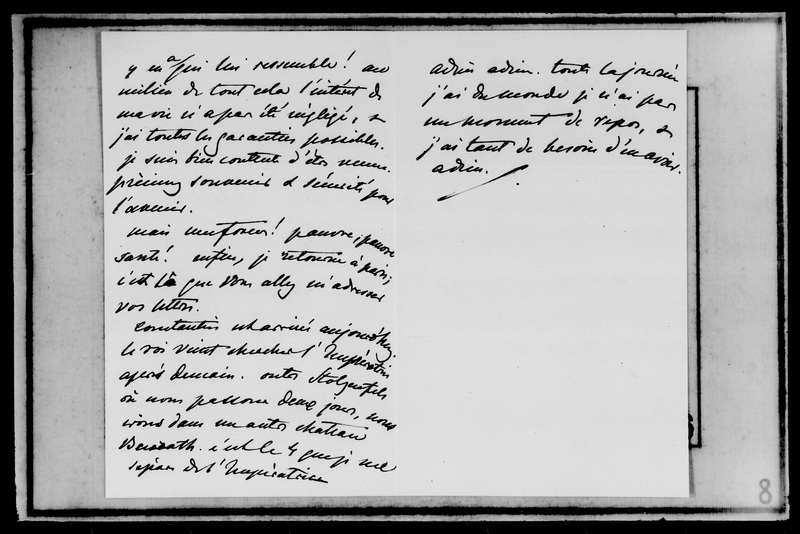 y en a qui lui ressemble! au
milieu de tout cela l'intérêt de
ma vie n'a pas été négligé, et
j'ai toutes les garanties possibles.
je suis bien contente d'être venue.
précieux souvenirs et sécurité pour
l'avenir.
mais mes forces! pauvre, pauvre
santé! enfin, je retourne à paris,
c'est là que vous allez m'adresser
vos lettres.
Constantin est arrivé aujourd'hui
le roi vient chercher l'Impératrice
après demain. outre Stolzenfels
où nous passons deux jours, nous
irons dans un autre château
Benrath. c'est le 4 que je me
sépare de l'Impératrice
adieu adieu. toute la journée
j'ai du monde je n'ai pas
un moment de repos, et
j'ai tant de besoin d'en avoir.
adieu.
8